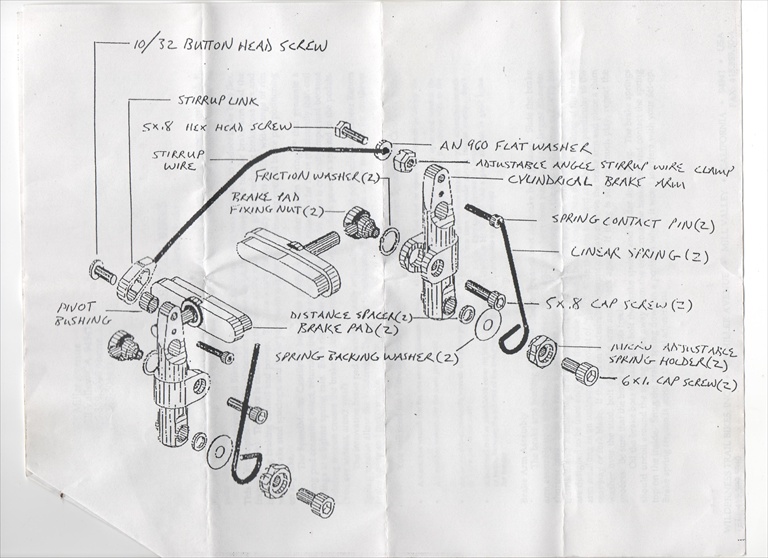 10/32 BUTTON HEAD SCREW
STIRRUP LINK
5X.8 HEX HEAD SCREW
STIRRUP
WIRE
AN 960 FLAT WASHER
ADJUSTABLE ANGLE STIRRUP WIRE CLAMP
CYLINDRICAL BRAKE ARM
FRICTION WASHER(2)
BRAKE PAD
FIXING NUT(2)
SPRING CONTACT PIN(2)
LINEAR SPRING(2)
PIVOT
BUSHING
DISTANCE SPACER(2)
BRAKE PAD(2)
5X.8 CAP SCREW(2)
SPRING BACKING WASHER(2)
MICRO ADJUSTABLE
SPRING HOLDER(2)
6X1. CAP SCREW(2)